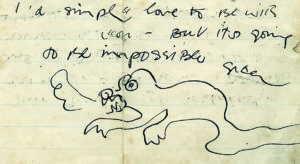 I'd simply love to be with
you - But it's going
to be impossible